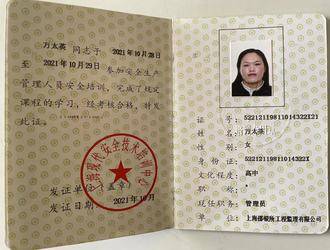 万太英 同志于 2021年10月28日
至 2021年10月29日 参加安全生产
管理人员安全培训，完成了规定
课程的学习，经考核合格，特发
此证。
安全技术培训中心
发证单位（盖章）
发证日期 2021年10月
证 号：
姓 名：万太英
性 别：女
身 份 证：
文化程度：高中
职 称：*
现任职务：管理员
单 位：